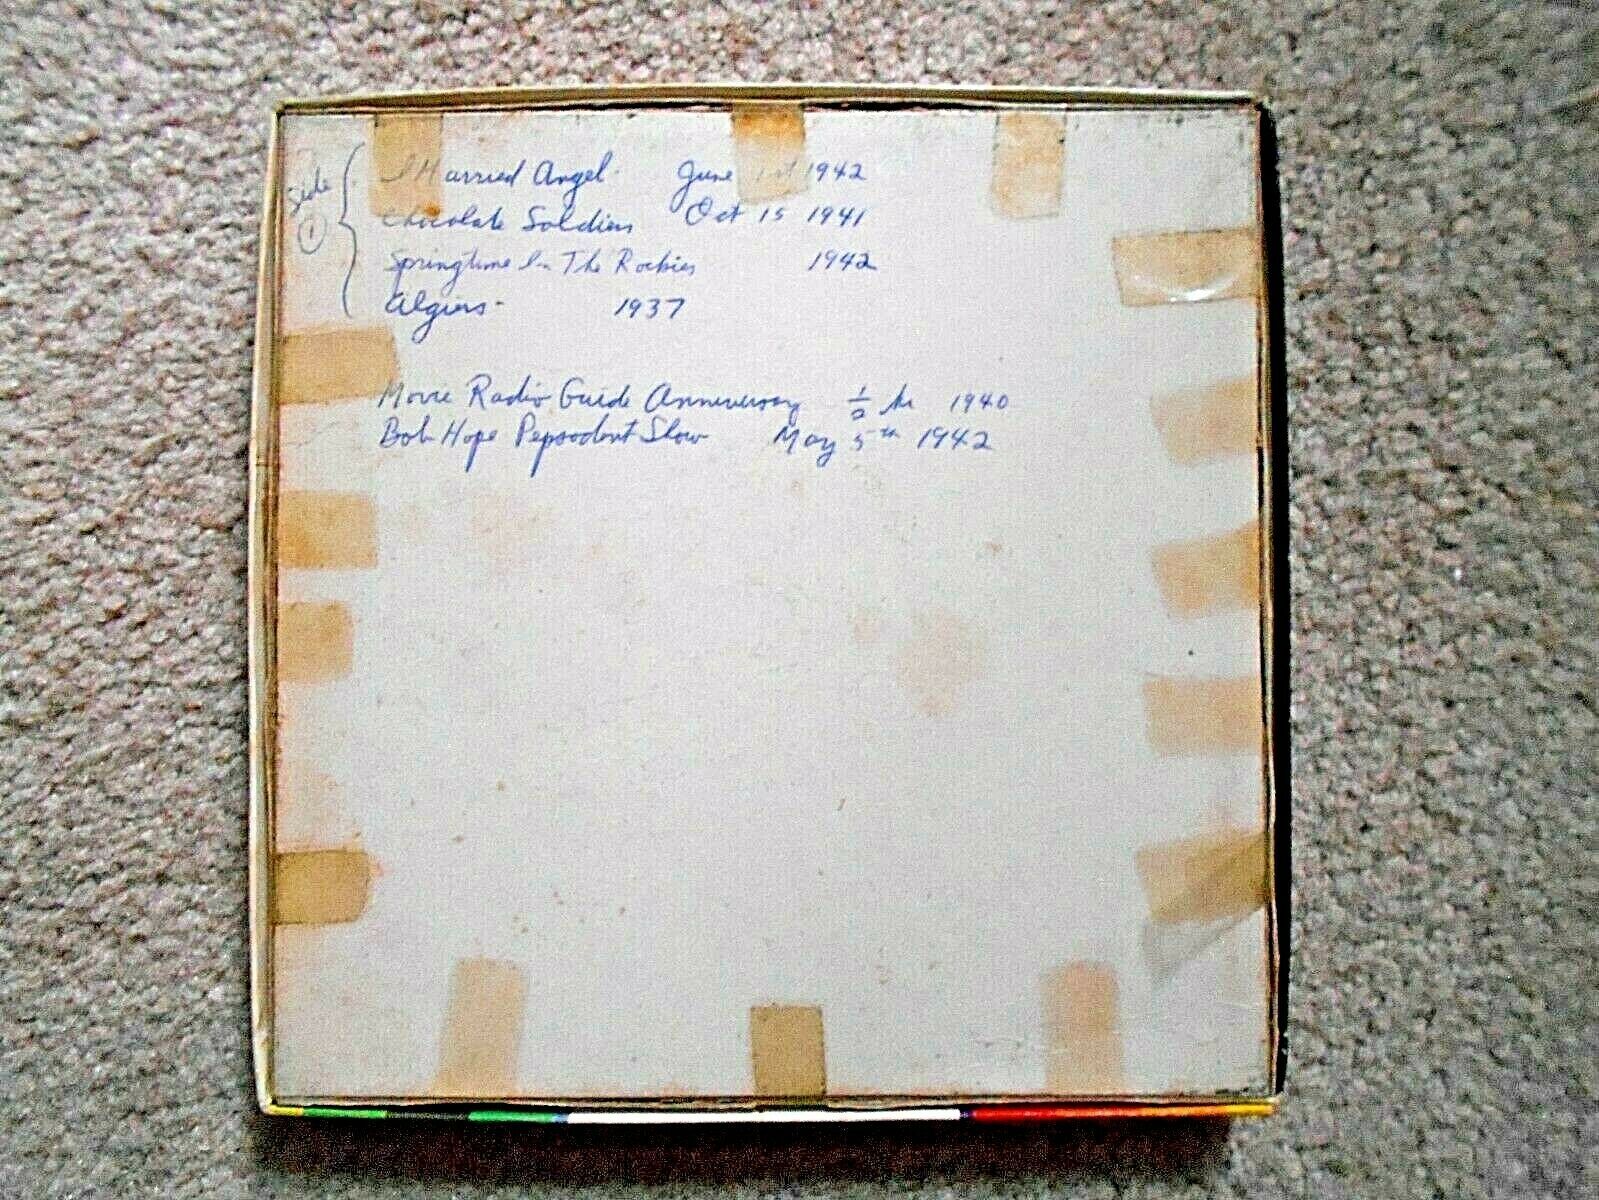 Side 1
I Married Angel. June 1st 1942
Chocolate Soldiers Oct 15 1941
Springtime In The Rockies 1942
Algiers - 1937
Movie Radio Guide Anniversary 1/2 hr 1940
Bob Hope Pepsodent Show May 5th 1942